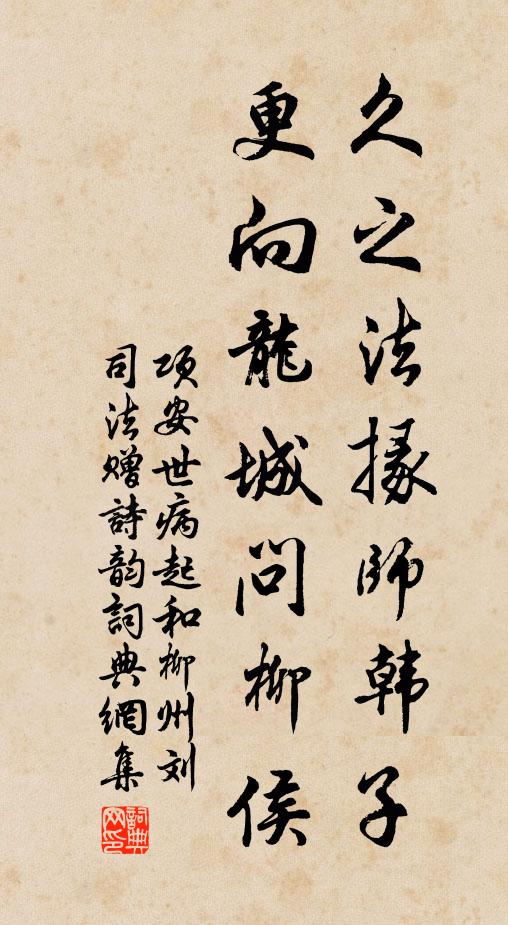 久之法掾师韩子
更向龍城問柳侯
项安世病起和柳州刘
司法赠詩韵詞典網集
詞典网印